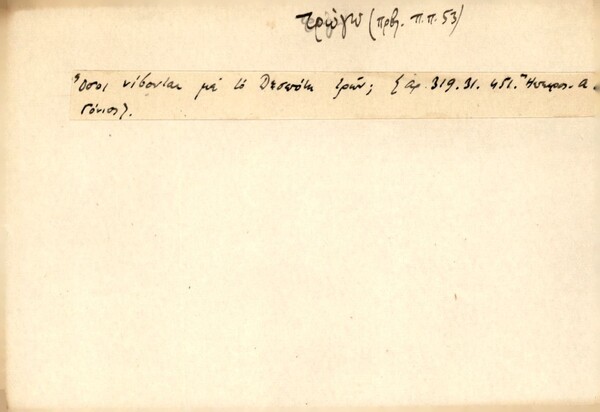 τρώγω (πρβλ. Π.Π. 53)
Ὅσοι νίβονται μὲ τὸ Δεσπότη τρῶν; {ἀρ. 319. 31. 451. Ἤπειρος. Α.
Γόνιος}.